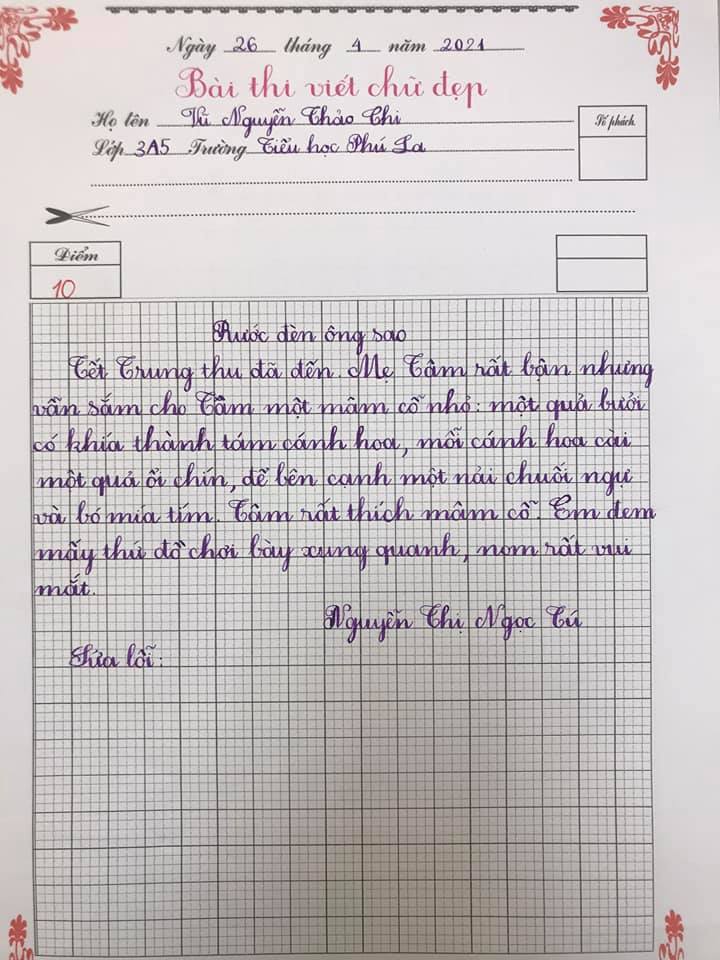 Ngày 26 tháng 4 năm 2021
Bài thi viết chữ đẹp
Họ tên Vũ Nguyễn Thảo Chi
Số phách
Lớp 3A5 Trường Tiểu học Phú La
Điểm
10
Rước đèn ông sao
Tết Trung thu đã đến. Mẹ Tâm rất bận nhưng
vẫn sắm cho Tâm một mâm cỗ nhỏ: một quả bưởi
có khía thành tám cánh hoa, mỗi cánh hoa cài
một quả ổi chín, để bên cạnh một nải chuối ngự
và bó mía tím. Tâm rất thích mâm cỗ. Em đem
mấy thứ đồ chơi bày xung quanh, nom rất vui
mắt.
Nguyễn Thị Ngọc Tú
Sửa lỗi: